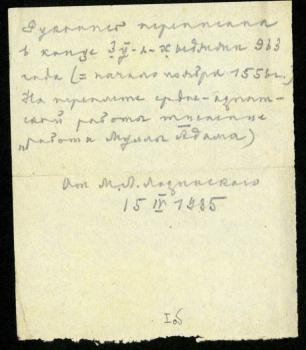 Рукопись переписана
в конце З-у-л-х иджжы 963
года (= начало ноября 1556 г.)
На переплете средне-азиат-
ской работы тиснение
„работа Муллы Адама")
От М. Л. Лозинского
15 IV 1935
Iоб